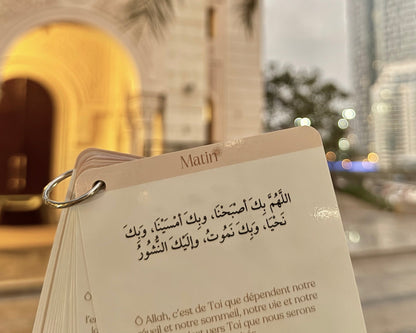 Matin
اللَّهُمَّ بِكَ أَصْبَحْنَا، وَبِكَ أَمْسَيْنَا، وَبِكَ
نَحْيَا، وَبِكَ نَمُوتُ، وَإِلَيْكَ النُّشُورُ
Ô Allah, c'est de Toi que dépendent notre
réveil et notre sommeil, notre vie et notre
vers Toi que nous serons